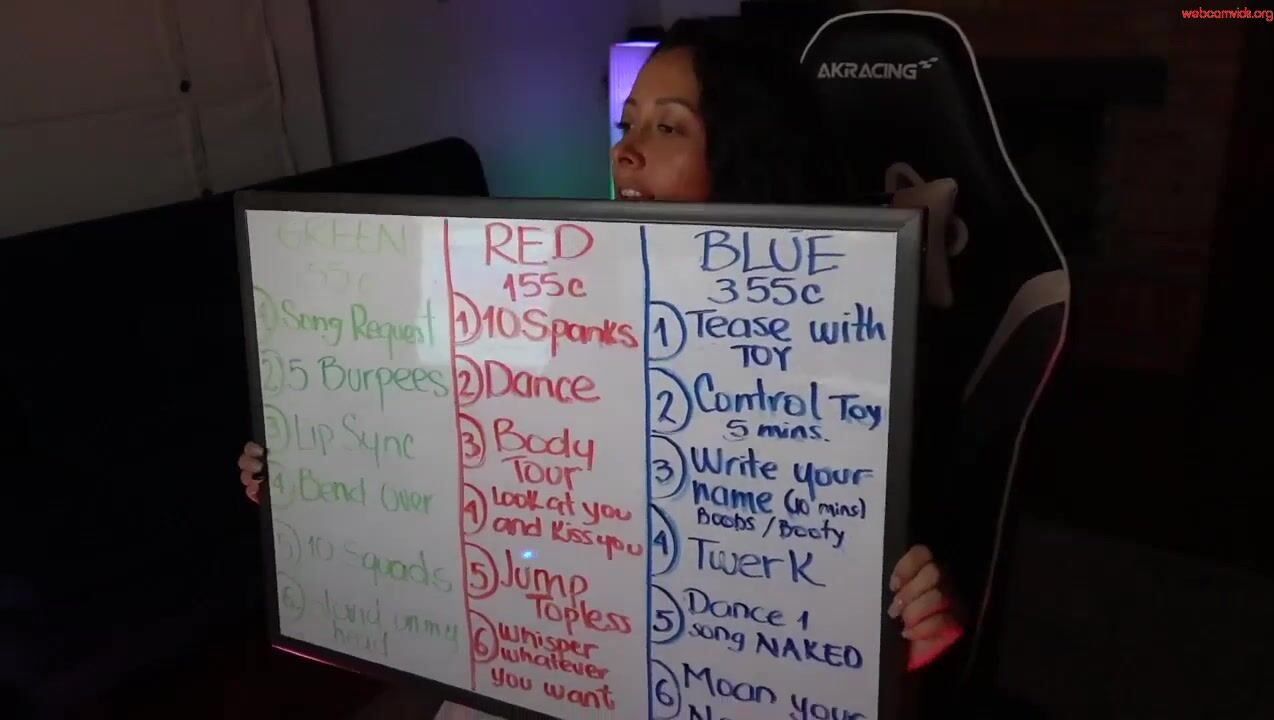 webcamvids.org
AKRACING
GREEN
55c
1 Song Request
2 5 Burpees
3 Lip Sync
4 Bend Over
5 10 Squads
6 stand on my
head
RED
155c
1 10 Spanks
2 Dance
3 Body
TOUR
4 Look at you
and Kiss you
5 Jump
Topless
6 Whisper
whatever
you want
BLUE
355c
1 Tease with
TOY
2 Control Toy
5 mins.
3 Write your
name (10 mins)
Boobs / Booty
4 Twerk
5 Dance 1
song NAKED
6 Moan your